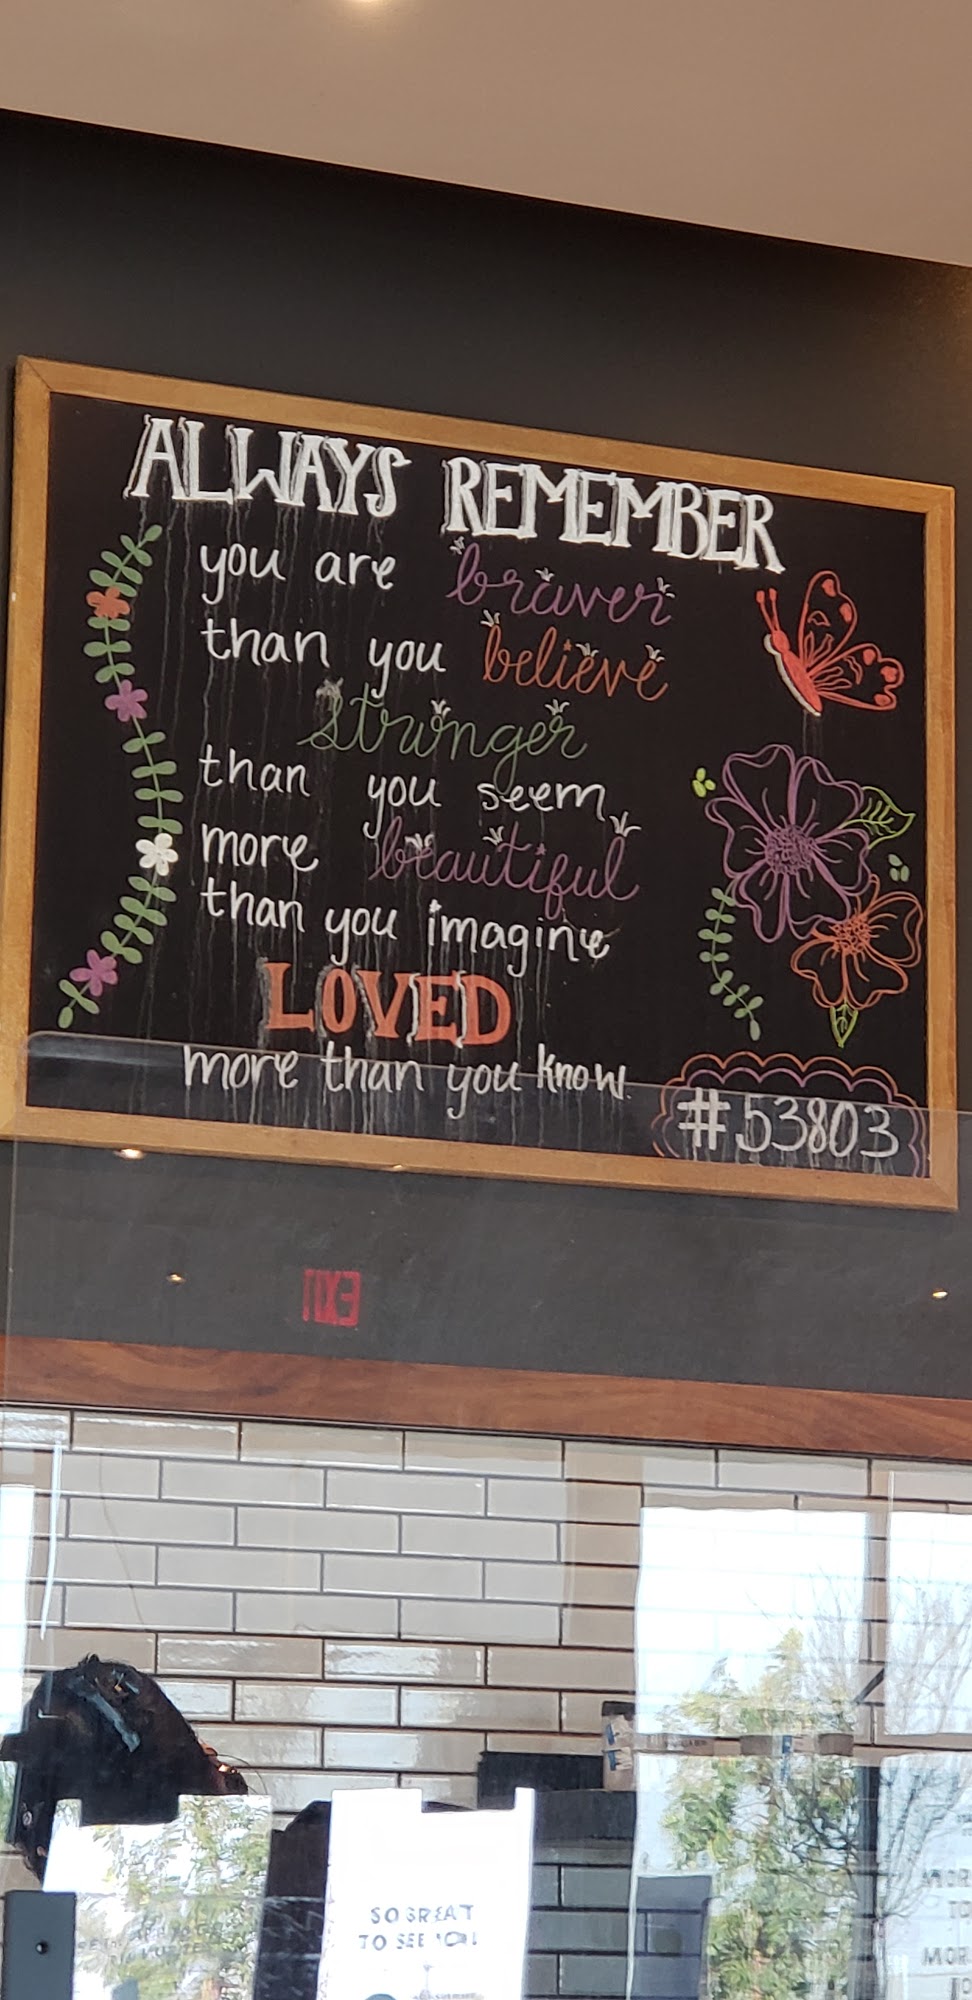 ALWAYS REMEMBER
you are braver
than you believe
stronger
than you seem
more beautiful
than you imagine
LOVED
more than you know.
#53803
EXIT
SO GREAT
TO SEE YOU!